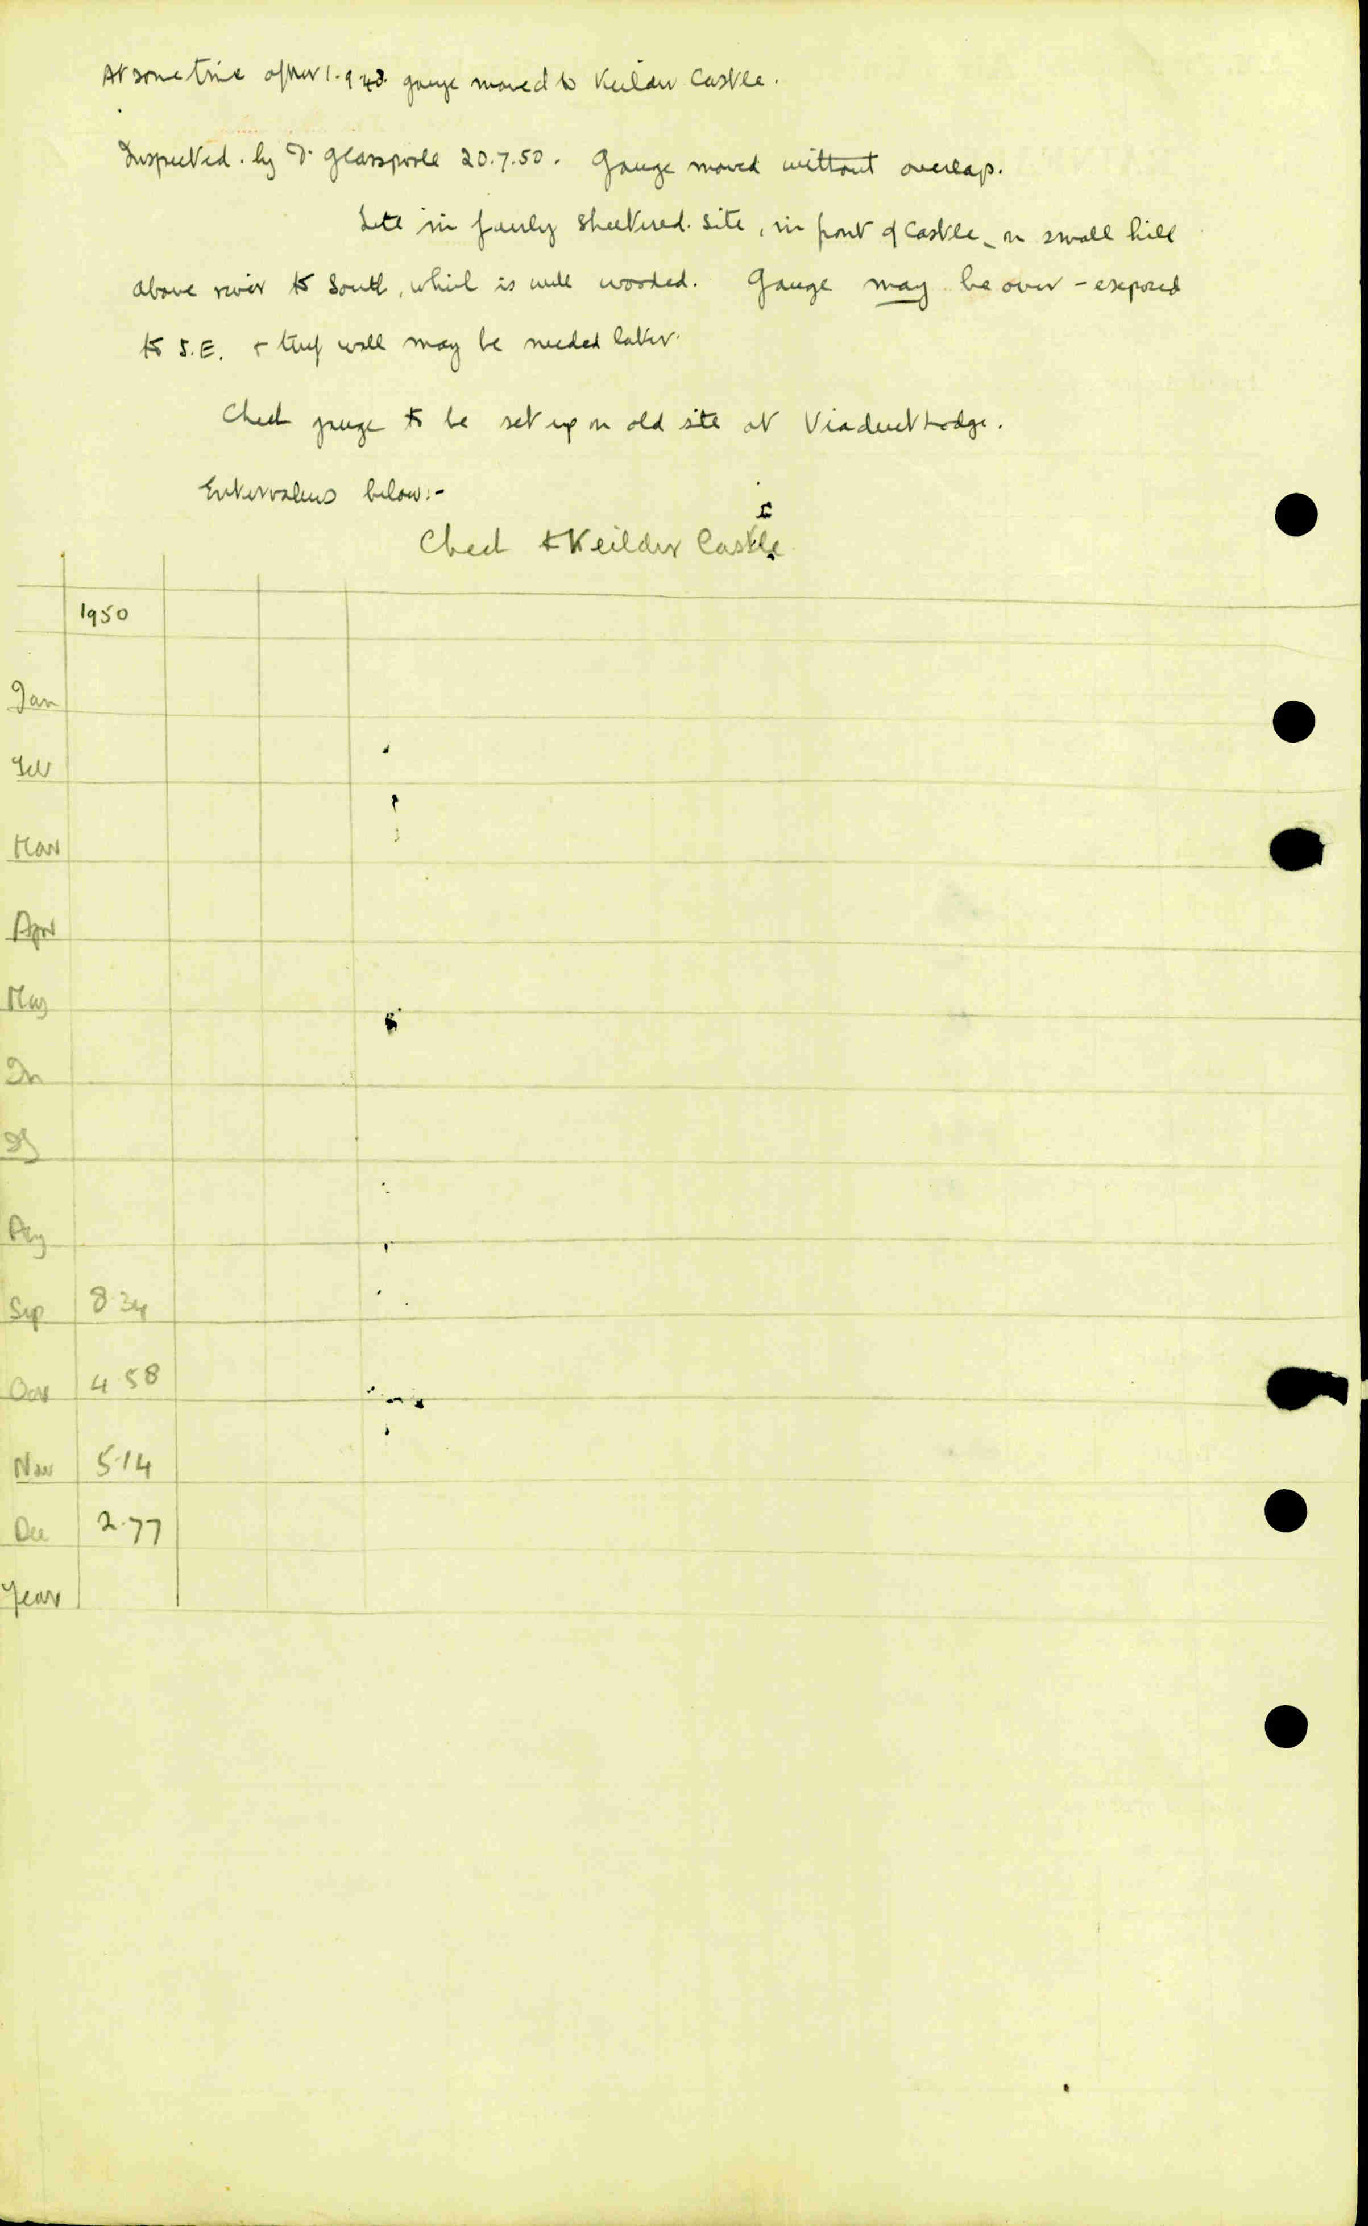 At some time after 1.9.48 gauge moved to Keilder Castle.
Inspected by Dr Glasspoole 20.7.50. Gauge moved without overlap.
Site in fairly sheltered site, in front of Castle, on small hill
above river to South, which is well wooded. Gauge may be over-exposed
to S.E. & turf wall may be needed later.
Check gauge to be set up on old site at Viaduct Lodge.
Enter values below:-
Check Keilder Castle
1950
Jan
Feb
Mar
Apr
May
Jn
Jy
Aug
Sep 8.34
Oct 4.58
Nov 5.14
Dec 2.77
Year